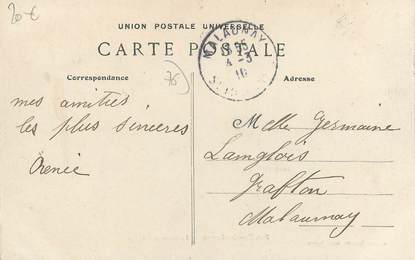 20 €
UNION POSTALE UNIVERSELLE
CARTE POSTALE
MALAUNAY
4 - 3
10
Correspondance
76
Adresse
mes amitiés
les plus sincères
Renée
Melle Germaine
Langlois
Grafton
Malaunay